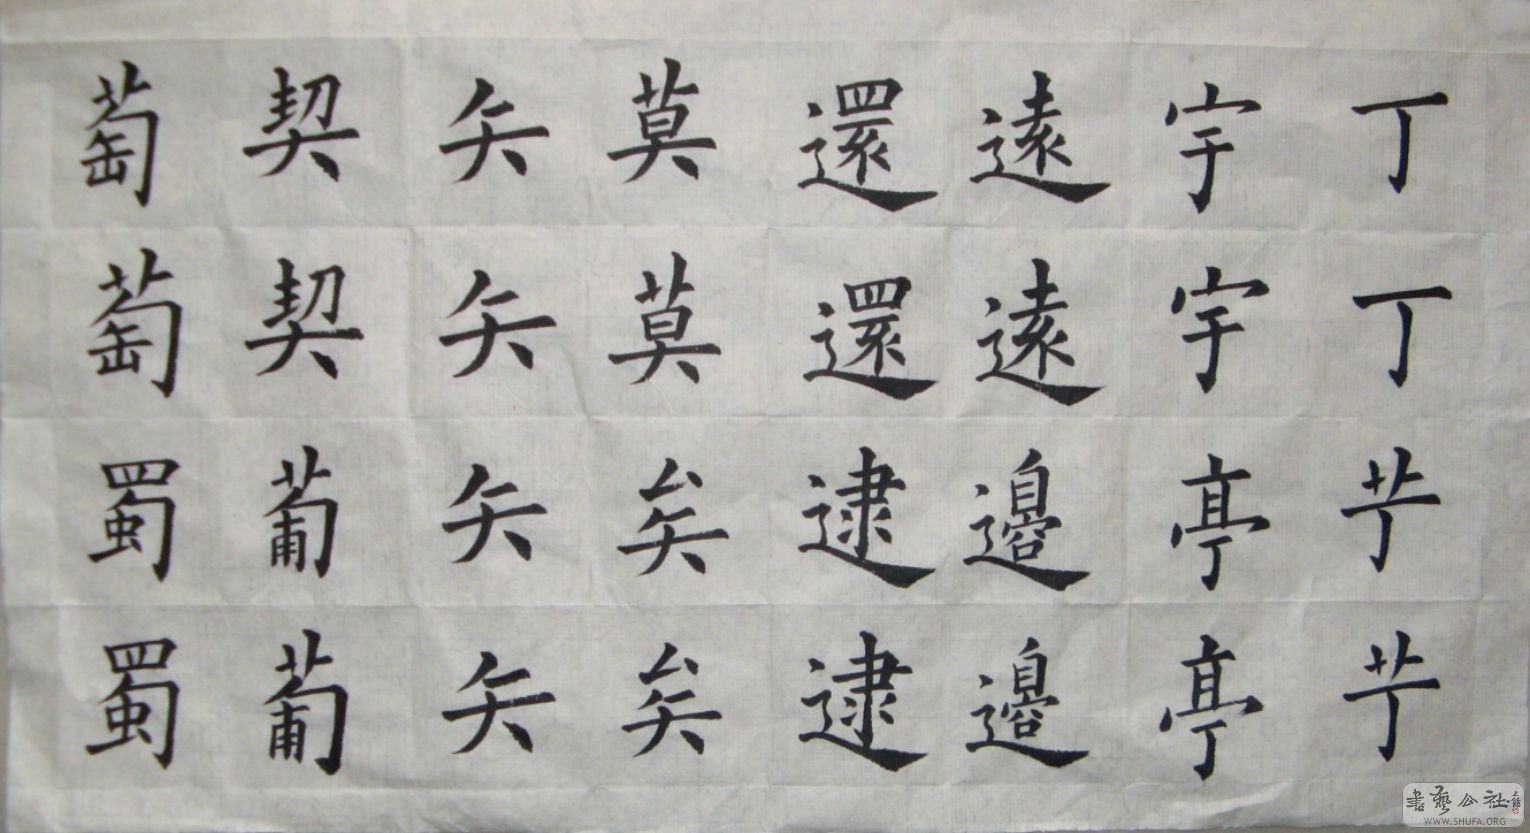 丁丁艼艼
宇宇亭亭
遠遠邊邊
還還逮逮
莫莫矣矣
矢矢矢矢
契契葡葡
萄萄蜀蜀
書藝公社
WWW.SHUFA.ORG